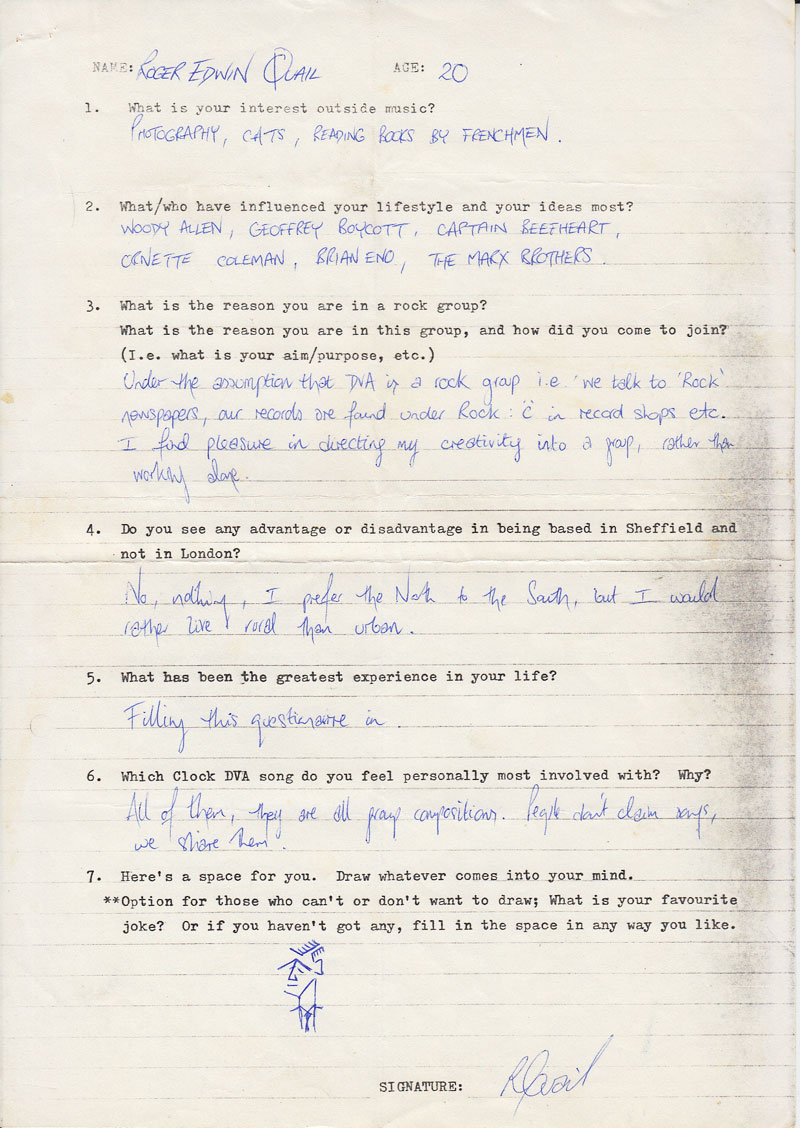 NAME: ROGER EDWIN QUAIL AGE: 20
1. What is your interest outside music?
PHOTOGRAPHY, CATS, READING BOOKS BY FRENCHMEN.
2. What/who have influenced your lifestyle and your ideas most?
WOODY ALLEN, GEOFFREY BOYCOTT, CAPTAIN BEEFHEART,
ORNETTE COLEMAN, BRIAN ENO, THE MARX BROTHERS.
3. What is the reason you are in a rock group?
What is the reason you are in this group, and how did you come to join?
(I.e. what is your aim/purpose, etc.)
Under the assumption that DVA is a rock group i.e. 'we talk to 'Rock'
newspapers, our records are found under Rock: 'C' in record shops etc.
I find pleasure in directing my creativity into a group, rather than
working alone.
4. Do you see any advantage or disadvantage in being based in Sheffield and
not in London?
No, nothing, I prefer the North to the South, but I would
rather live rural than urban.
5. What has been the greatest experience in your life?
Filling this questionaire in.
6. Which Clock DVA song do you feel personally most involved with? Why?
All of them, they are all group compositions. People don't claim songs,
we share them.
7. Here's a space for you. Draw whatever comes into your mind.
**Option for those who can't or don't want to draw; What is your favourite
joke? Or if you haven't got any, fill in the space in any way you like.
SIGNATURE: R Quail